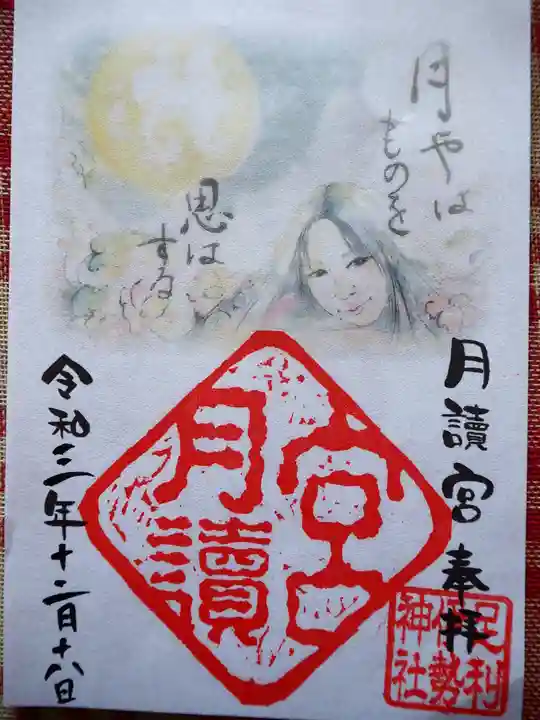 月やは
ものを
思は
する
月讀宮 奉拝
宮
月讀
足利
伊勢
神社
令和三年十二月十八日